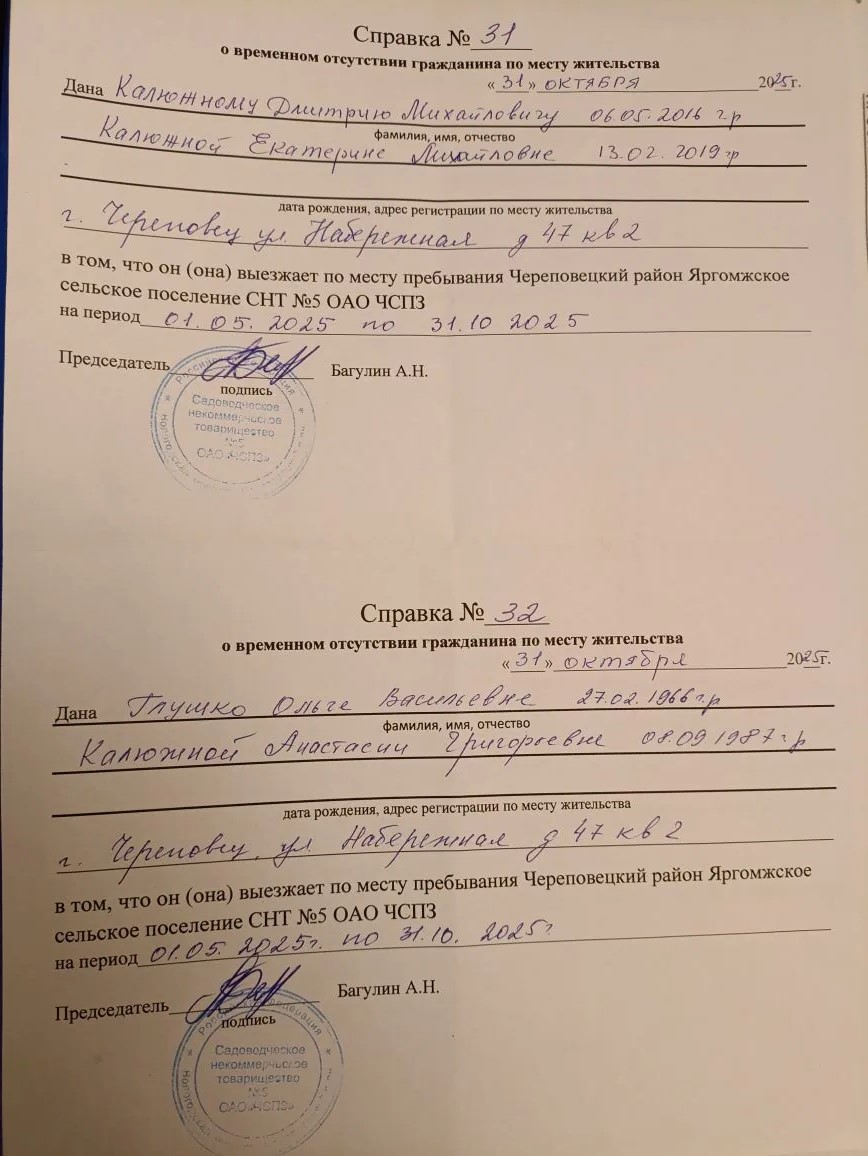 Справка № 31
о временном отсутствии гражданина по месту жительства
«31» октября 2025г.
Дана Калюжному Дмитрию Михайловичу 06.05.2016 г.р
фамилия, имя, отчество
Калюжной Екатерине Михайловне 13.02.2019 г.р
дата рождения, адрес регистрации по месту жительства
г. Череповец ул. Набережная д 47 кв 2
в том, что он (она) выезжает по месту пребывания Череповецкий район Яргомжское
сельское поселение СНТ №5 ОАО ЧСПЗ
на период 01.05.2025 по 31.10 2025
Председатель Багулин А.Н.
подпись
Российская Федерация
Садоводческое
некоммерческое
товарищество
№5
ОАО «ЧСПЗ»
Справка № 32
о временном отсутствии гражданина по месту жительства
«31» октября 2025г.
Дана Глушко Ольге Васильевне 27.02.1966 г.р
фамилия, имя, отчество
Калюжной Анастасии Григорьевне 08.09.1987 г.р
дата рождения, адрес регистрации по месту жительства
г. Череповец, ул. Набережная д 47 кв 2
в том, что он (она) выезжает по месту пребывания Череповецкий район Яргомжское
сельское поселение СНТ №5 ОАО ЧСПЗ
на период 01.05.2025г. по 31.10. 2025г.
Председатель Багулин А.Н.
подпись
Российская Федерация
Садоводческое
некоммерческое
товарищество
№5
ОАО «ЧСПЗ»